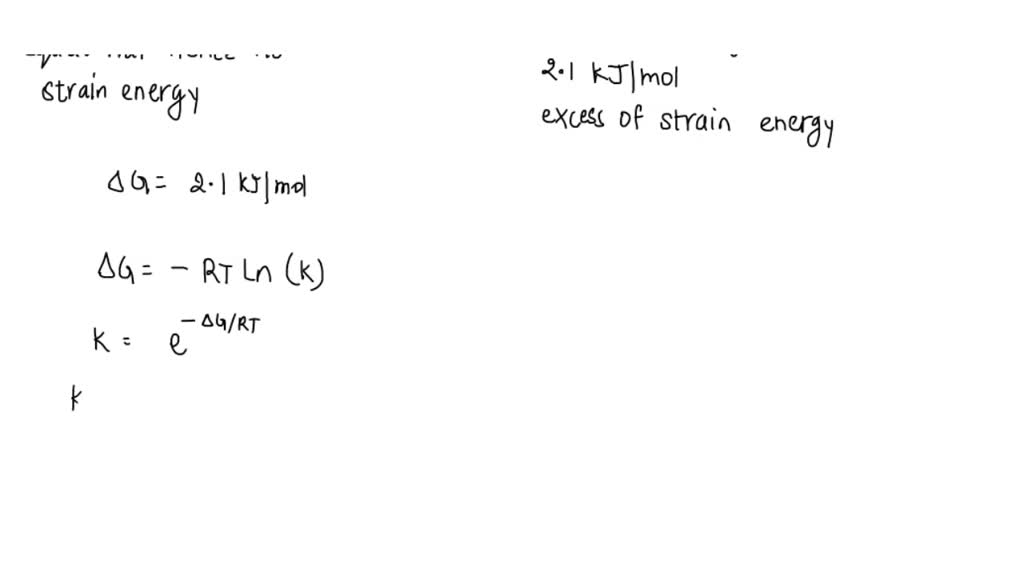 strain energy
ΔG = 2.1 kJ/mol
ΔG = - RT Ln (K)
K = e^-ΔG/RT
K
2.1 KJ/mol
excess of strain energy